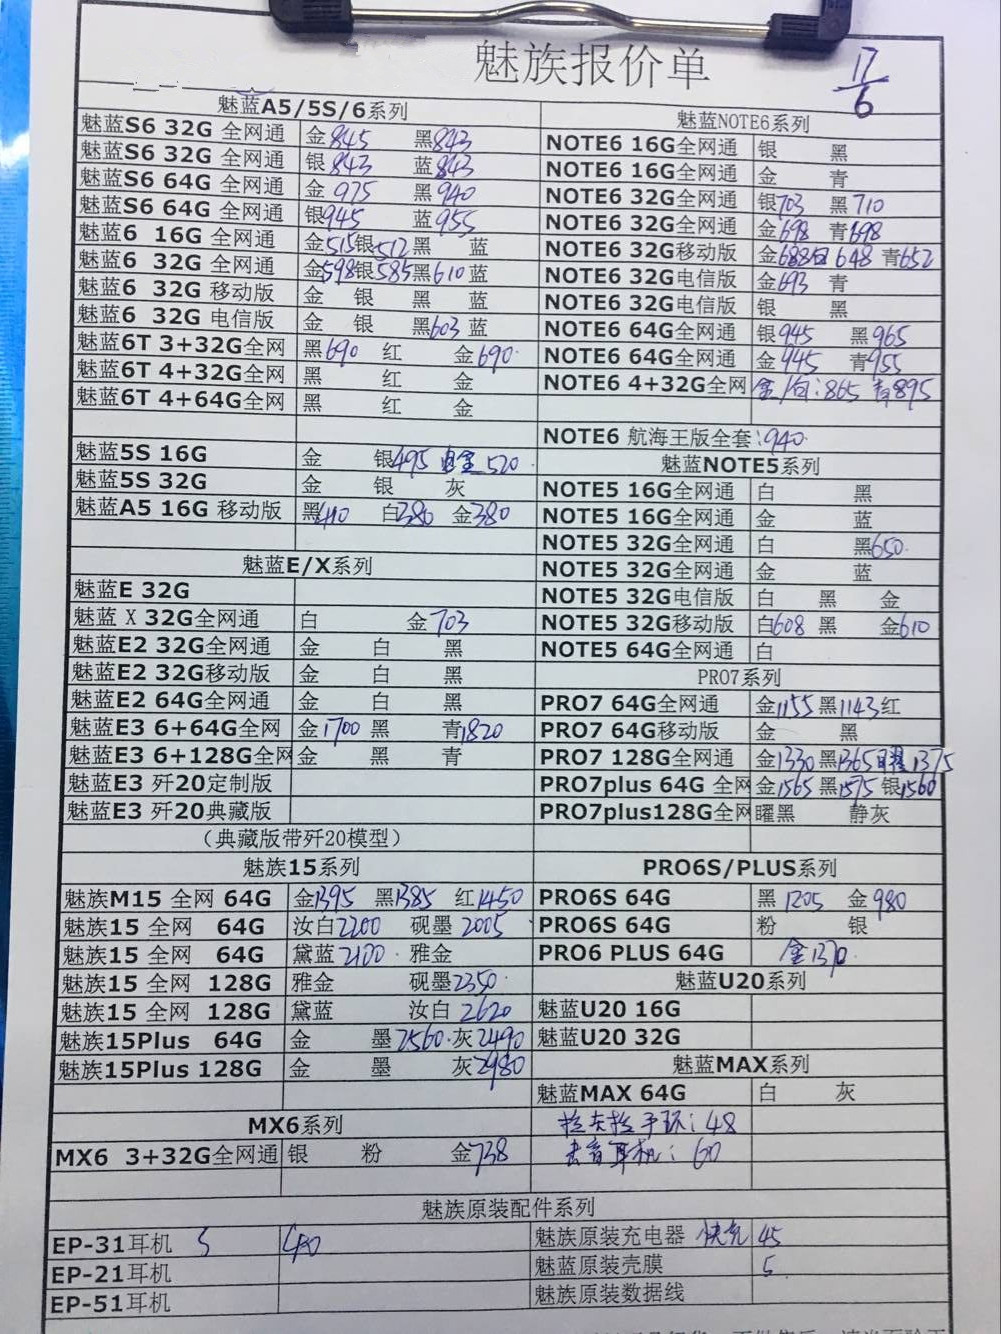 魅族报价单
17/6
魅蓝A5/5S/6系列
魅蓝S6 32G 全网通 金845 黑843
魅蓝S6 32G 全网通 银843 蓝843
魅蓝S6 64G 全网通 金975 黑940
魅蓝S6 64G 全网通 银945 蓝955
魅蓝6 16G 全网通 金515银512黑 蓝
魅蓝6 32G 全网通 金598银585黑610蓝
魅蓝6 32G 移动版 金 银 黑 蓝
魅蓝6 32G 电信版 金 银 黑603 蓝
魅蓝6T 3+32G全网 黑690 红 金690
魅蓝6T 4+32G全网 黑 红 金
魅蓝6T 4+64G全网 黑 红 金
魅蓝5S 16G 金 银495 金520
魅蓝5S 32G 金 银 灰
魅蓝A5 16G 移动版 黑410 白380 金380
魅蓝E/X系列
魅蓝E 32G
魅蓝X 32G全网通 白 金703
魅蓝E2 32G全网通 金 白 黑
魅蓝E2 32G移动版 金 白 黑
魅蓝E2 64G全网通 金 白 黑
魅蓝E3 6+64G全网 金1700 黑 青1820
魅蓝E3 6+128G全网 金 黑 青
魅蓝E3 歼20定制版
魅蓝E3 歼20典藏版
（典藏版带歼20模型）
魅族15系列
魅族M15 全网 64G 金1395 黑1385 红1450
魅族15 全网 64G 汝白2200 砚墨2005
魅族15 全网 64G 黛蓝2100 雅金
魅族15 全网 128G 雅金 砚墨2350
魅族15 全网 128G 黛蓝 汝白2620
魅族15Plus 64G 金 墨2560 灰2490
魅族15Plus 128G 金 墨 灰2980
MX6系列
MX6 3+32G全网通 银 粉 金738
魅蓝NOTE6系列
NOTE6 16G全网通 银 黑
NOTE6 16G全网通 金 青
NOTE6 32G全网通 银703 黑710
NOTE6 32G全网通 金698 青698
NOTE6 32G移动版 金688银648 青652
NOTE6 32G电信版 金693 青
NOTE6 32G电信版 银 黑
NOTE6 64G全网通 银945 黑965
NOTE6 64G全网通 金945 青955
NOTE6 4+32G全网 金/白：865 青895
NOTE6 航海王版全套：940
魅蓝NOTE5系列
NOTE5 16G全网通 白 黑
NOTE5 16G全网通 金 蓝
NOTE5 32G全网通 白 黑650
NOTE5 32G全网通 金 蓝
NOTE5 32G电信版 白 黑 金
NOTE5 32G移动版 白608 黑 金610
NOTE5 64G全网通 白
PRO7系列
PRO7 64G全网通 金1155黑1143红
PRO7 64G移动版 金 黑
PRO7 128G全网通 金1330黑1365曜1375
PRO7plus 64G 全网 金1565 黑1575 银1560
PRO7plus128G全网 曜黑 静灰
PRO6S/PLUS系列
PRO6S 64G 黑1205 金980
PRO6S 64G 粉 银
PRO6 PLUS 64G 金1370
魅蓝U20系列
魅蓝U20 16G
魅蓝U20 32G
魅蓝MAX系列
魅蓝MAX 64G 白 灰
拉卡拉手环：48
耳机：60
魅族原装配件系列
EP-31耳机 490
EP-21耳机
EP-51耳机
魅族原装充电器 快充 45
魅蓝原装壳膜 5
魅族原装数据线